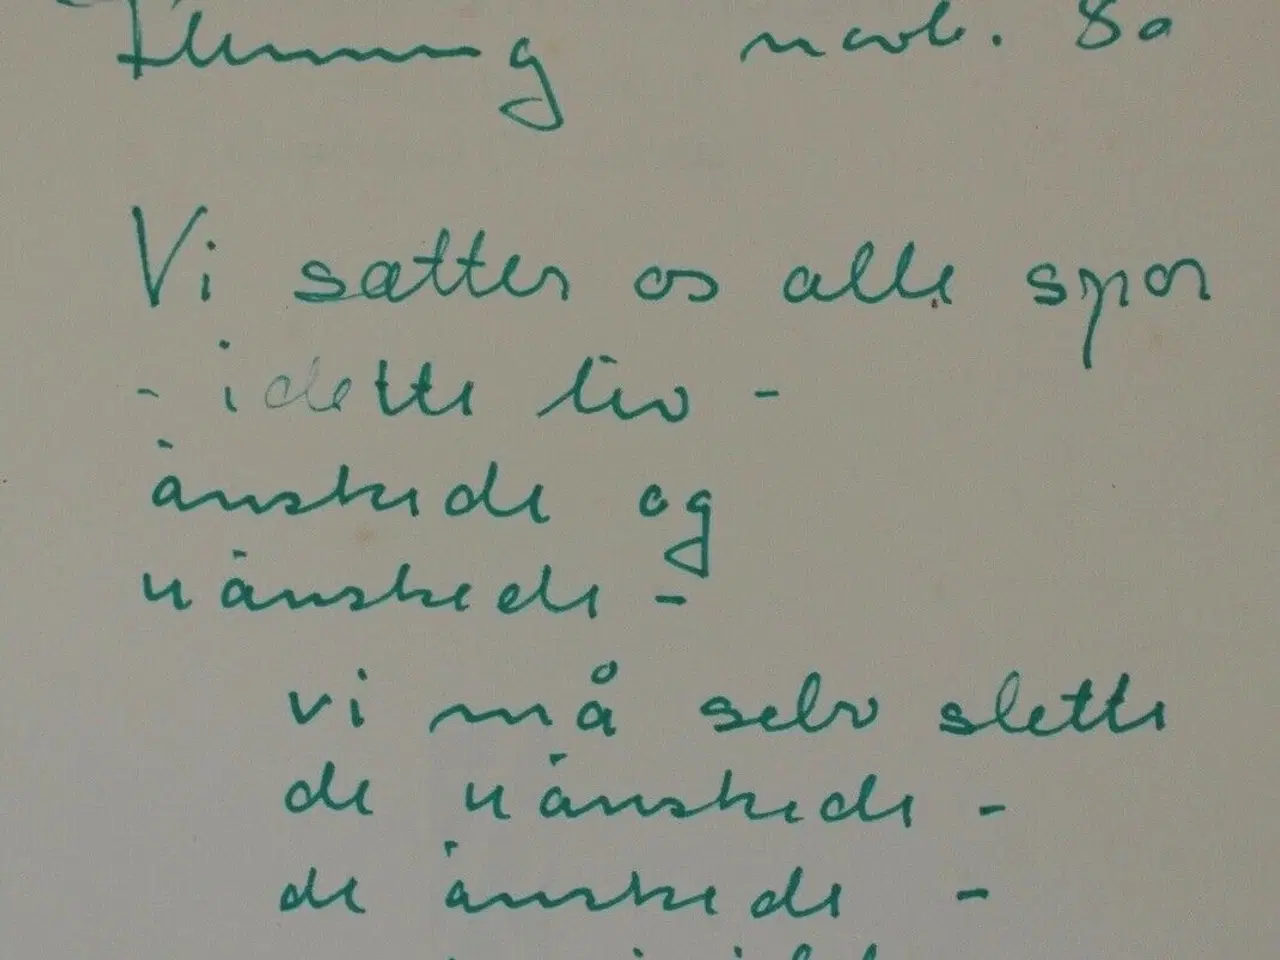 Flemming nov. 80
Vi sætter os alle spor
- i dette liv -
ønskede og
uønskede -
vi må selv slette
de uønskede -
de ønskede -